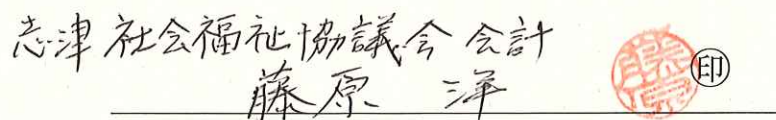 志津社会福祉協議会 会計
藤原 洋
藤原
㊞